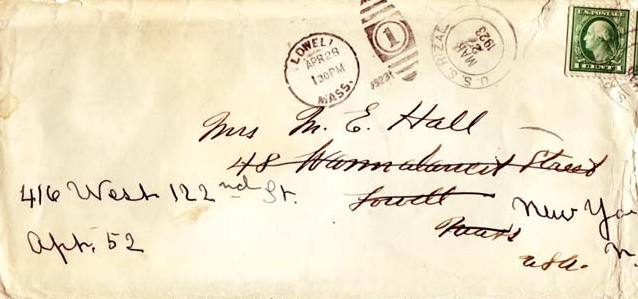 LOWELL
APR 28
1 30 PM
MASS.
1
1923
U.S.S. RIZAL
MAR
27
1923
U.S. POSTAGE
Mrs M. E. Hall
48 Wannalancit Street
Lowell
Mass
U.S.A.
416 West 122nd St.
Apt. 52
New Yo
N.